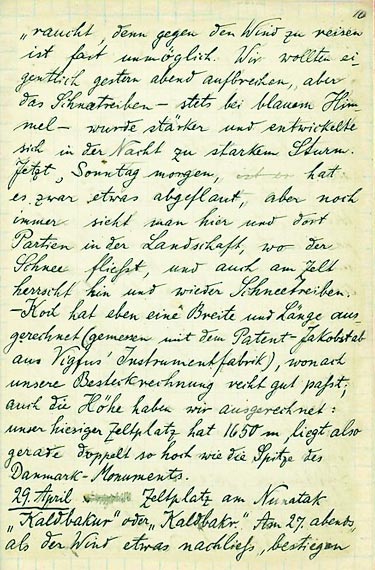 10
„raucht, denn gegen den Wind zu reisen
ist fast unmöglich. Wir wollten ei
gentlich gestern abend aufbrechen, aber
das Schneetreiben – stets bei blauem Him
mel – wurde stärker und entwickelte
sich in der Nacht zu starkem Sturm.
Jetzt, Sonntag morgen, hat
es zwar etwas abgeflaut, aber noch
immer sieht man hier und dort
Partien in der Landschaft, wo der
Schnee fliesst, und auch am Zelt
herrscht hin und wieder Schneetreiben.
– Koch hat eben eine Breite und Länge aus-
gerechnet (gemessen mit dem Patent-Jakobstab
aus Vigfus' Instrumentfabrik), wonach
unsere Besteckrechnung recht gut passt;
auch die Höhe haben wir ausgerechnet:
unser hiesiger Zeltplatz hat 1650 m, liegt also
gerade doppelt so hoch wie die Spitze des
Danmark-Monuments.
29. April Zeltplatz am Nunatak
„Kaldbakur" oder „Kaldbakr." Am 27. abends,
als der Wind etwas nachliess, bestiegen